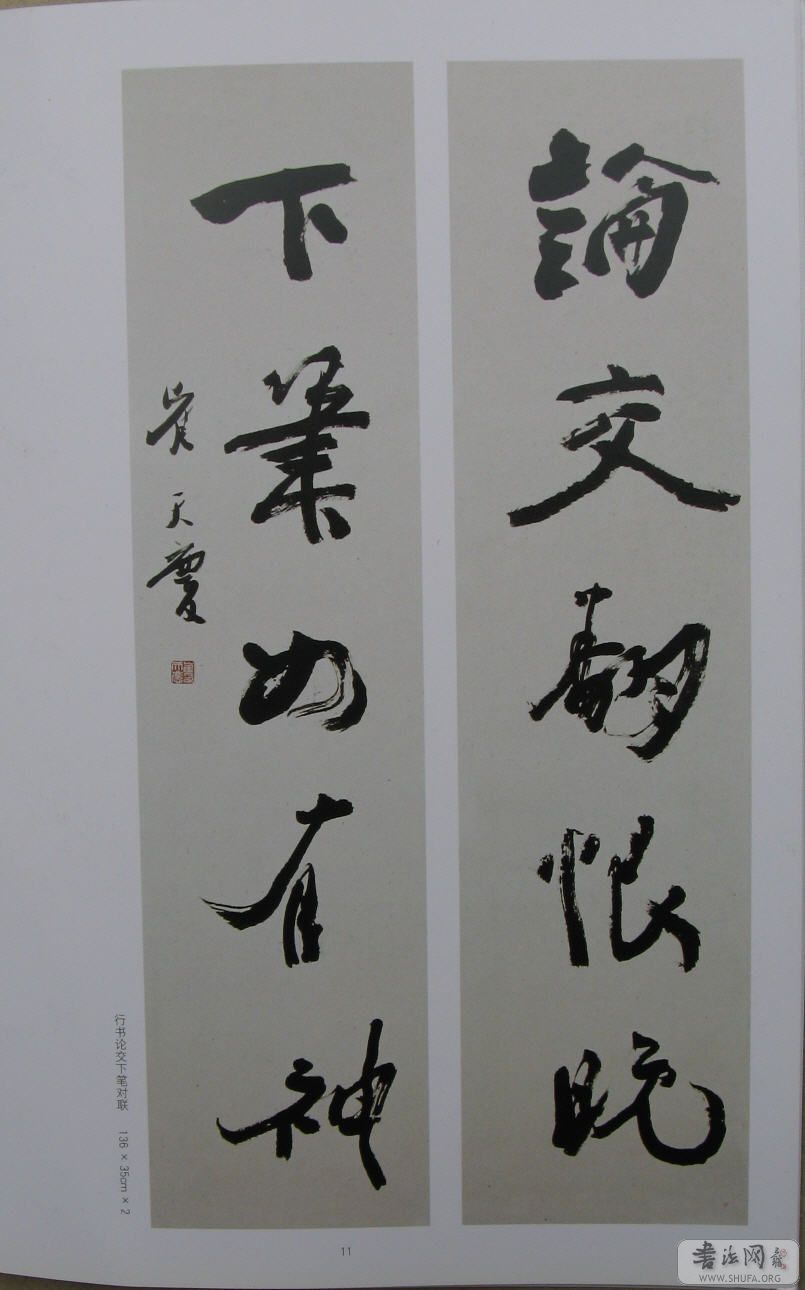 論交翻恨晚
下筆如有神
崔天慶
行书论交下笔对联 136×35cm×2
11
书法网
WWW.SHUFA.ORG